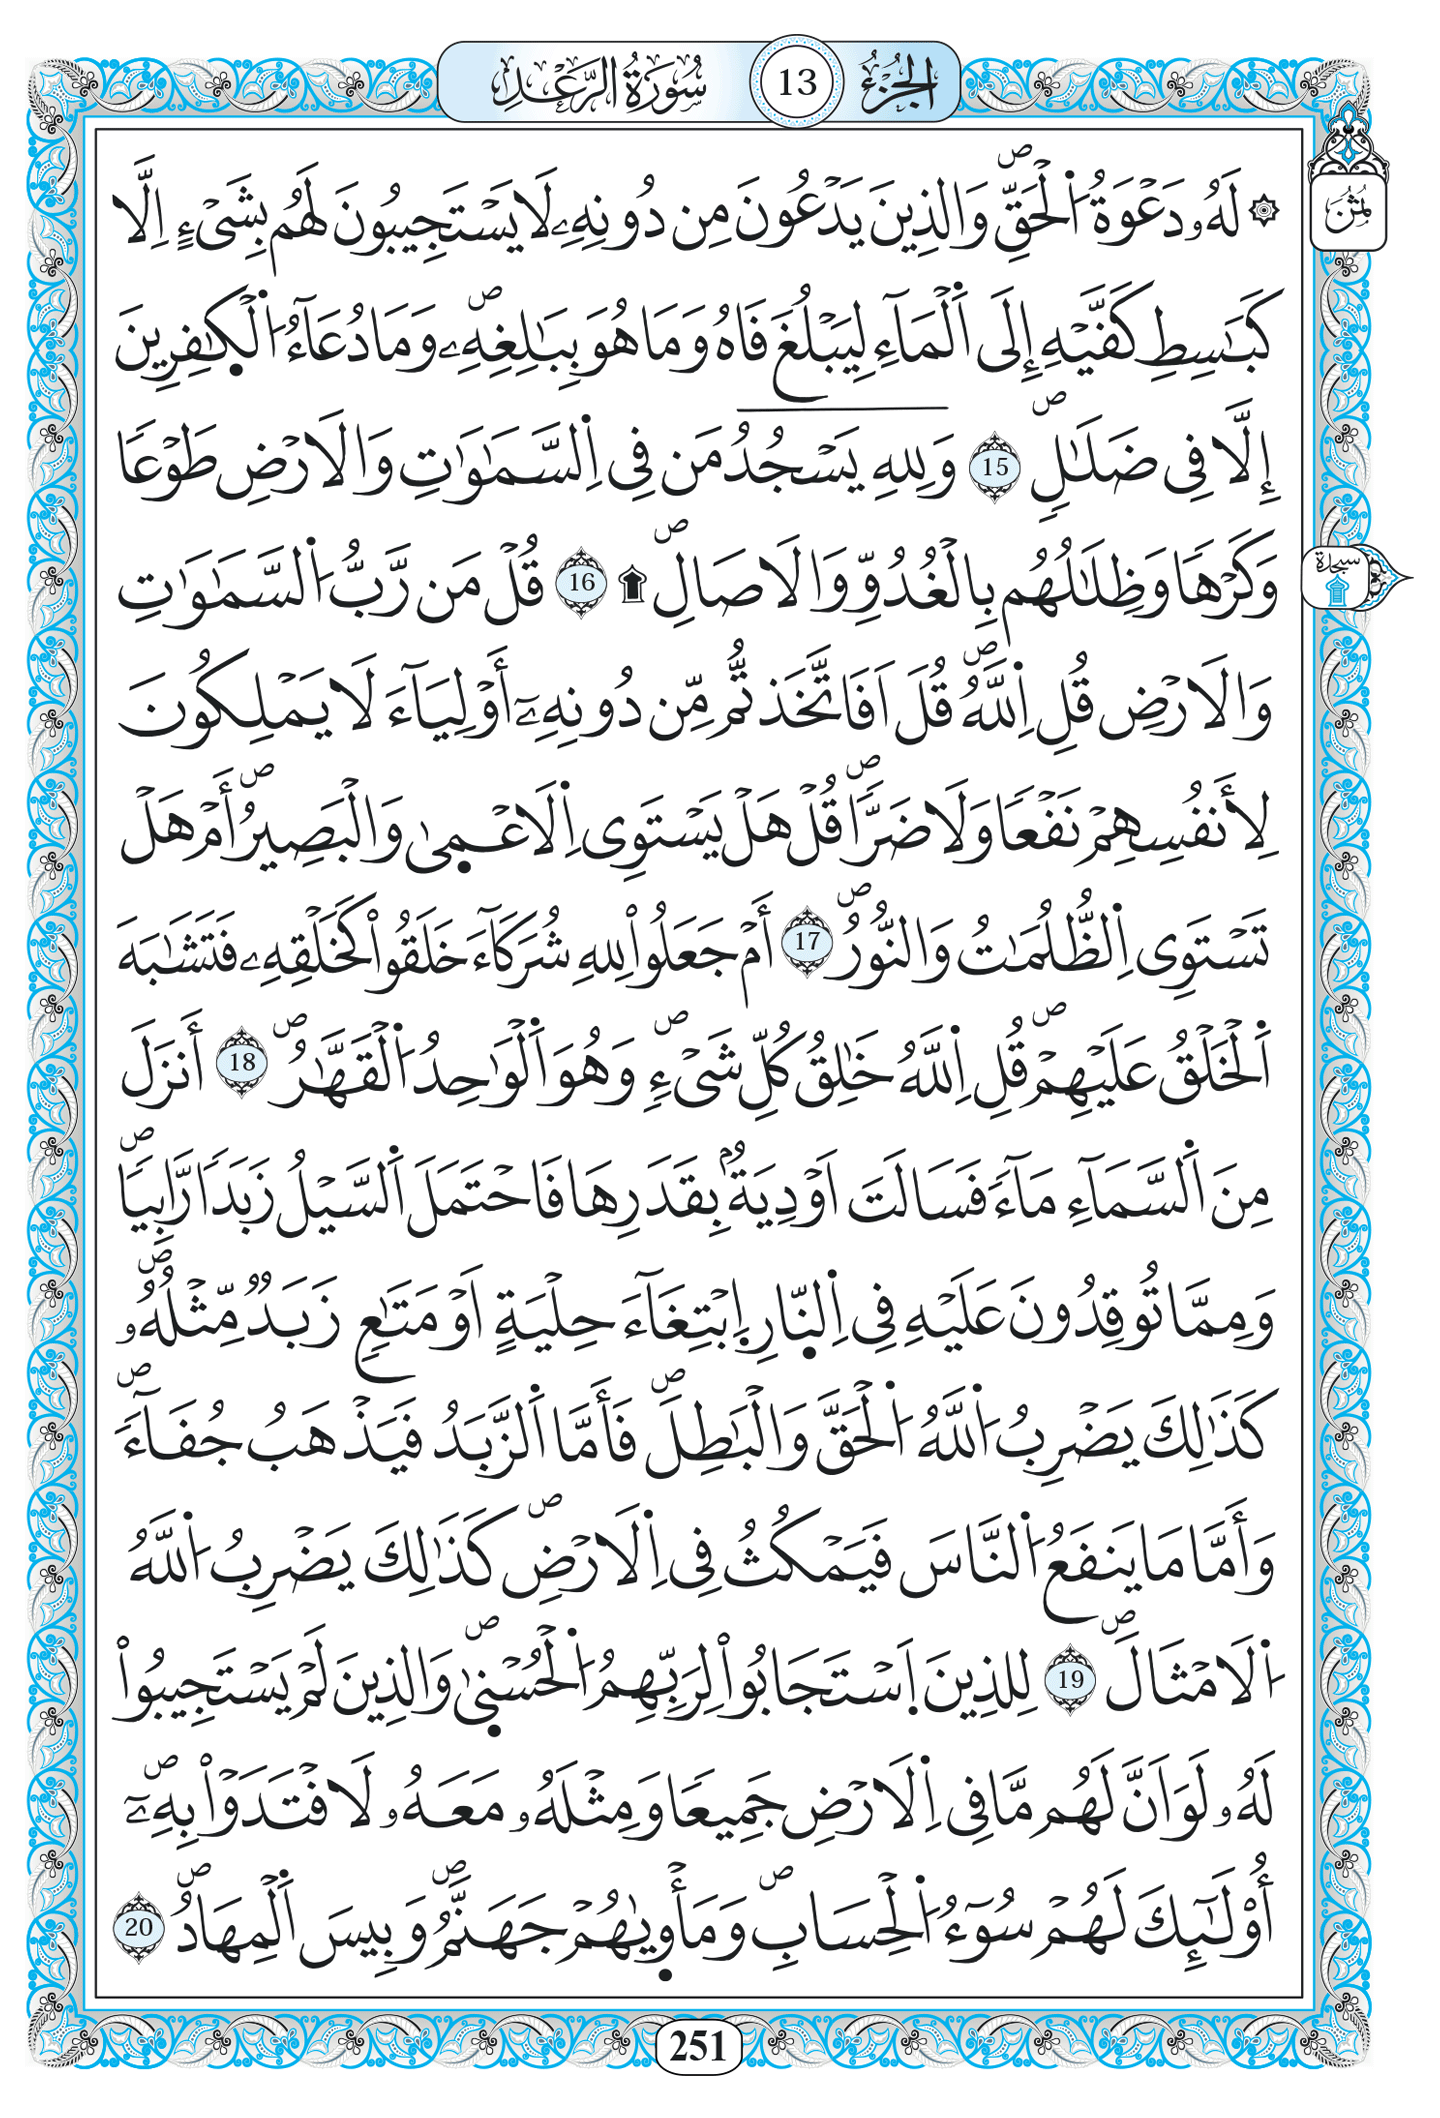 الجزء 13 سورة الرعد
ثمن
۞ لَهُۥ دَعْوَةُ اُ۬لْحَقِّۖ وَالذِينَ يَدْعُونَ مِن دُونِهِۦ لَا يَسْتَجِيبُونَ لَهُم بِشَےْءٍ اِلَّا
كَبَٰسِطِ كَفَّيْهِ إِلَى اَ۬لْمَآءِ لِيَبْلُغَ فَاهُ وَمَا هُوَ بِبَٰلِغِهِۦۖ وَمَا دُعَآءُ اُ۬لْكٰ۪فِرِينَ
إِلَّا فِى ضَلَٰلٖ 15 وَلِلهِ يَسْجُدُ مَن فِى اِ۬لسَّمَٰوَٰتِ وَالَارْضِ طَوْعاٗ
وَكَرْهاٗ وَظِلَٰلُهُم بِالْغُدُوِّ وَالَاصَالِۖ ۩ 16 قُلْ مَن رَّبُّ اُ۬لسَّمَٰوَٰتِ
سجدة
وَالَارْضِ قُلِ اِ۬للَّهُۖ قُلَ اَفَاتَّخَذتُّم مِّن دُونِهِۦٓ أَوْلِيَآءَ لَا يَمْلِكُونَ
لِأَنفُسِهِمْ نَفْعاٗ وَلَا ضَرّاٗۖ قُلْ هَلْ يَسْتَوِى اِ۬لَاعْم۪ىٰ وَالْبَصِيرُۖ أَمْ هَلْ
تَسْتَوِى اِ۬لظُّلُمَٰتُ وَالنُّورُۖ 17 أَمْ جَعَلُواْ لِلهِ شُرَكَآءَ خَلَقُواْ كَخَلْقِهِۦ فَتَشَٰبَهَ
اَ۬لْخَلْقُ عَلَيْهِمْۖ قُلِ اِ۬للَّهُ خَٰلِقُ كُلِّ شَےْءٖۖ وَهُوَ اَ۬لْوَٰحِدُ اُ۬لْقَهَّٰرُۖ 18 أَنزَلَ
مِنَ اَ۬لسَّمَآءِ مَآءٗ فَسَالَتَ اَوْدِيَةُۢ بِقَدَرِهَا فَاحْتَمَلَ اَ۬لسَّيْلُ زَبَداٗ رَّابِياٗۖ
وَمِمَّا تُوقِدُونَ عَلَيْهِ فِى اِ۬لنّ۪ارِ اِ۪بْتِغَآءَ حِلْيَةٍ اَوْ مَتَٰعٖ زَبَدٞ مِّثْلُهُۥۖ
كَذَٰلِكَ يَضْرِبُ اُ۬للَّهُ اُ۬لْحَقَّ وَالْبَٰطِلَۖ فَأَمَّا اَ۬لزَّبَدُ فَيَذْهَبُ جُفَآءٗۖ
وَأَمَّا مَا يَنفَعُ اُ۬لنَّاسَ فَيَمْكُثُ فِى اِ۬لَارْضِۖ كَذَٰلِكَ يَضْرِبُ اُ۬للَّهُ
اُ۬لَامْثَالَۖ 19 لِلذِينَ اَ۪سْتَجَابُواْ لِرَبِّهِمُ اُ۬لْحُسْن۪ىٰۖ وَالذِينَ لَمْ يَسْتَجِيبُواْ
لَهُۥ لَوَ اَنَّ لَهُم مَّا فِى اِ۬لَارْضِ جَمِيعاٗ وَمِثْلَهُۥ مَعَهُۥ لَافْتَدَوْاْ بِهِۦٓۖ
أُوْلَٰٓئِكَ لَهُمْ سُوٓءُ اُ۬لْحِسَابِۖ وَمَأْو۪يٰهُمْ جَهَنَّمُۖ وَبِيسَ اَ۬لْمِهَادُۖ 20
251